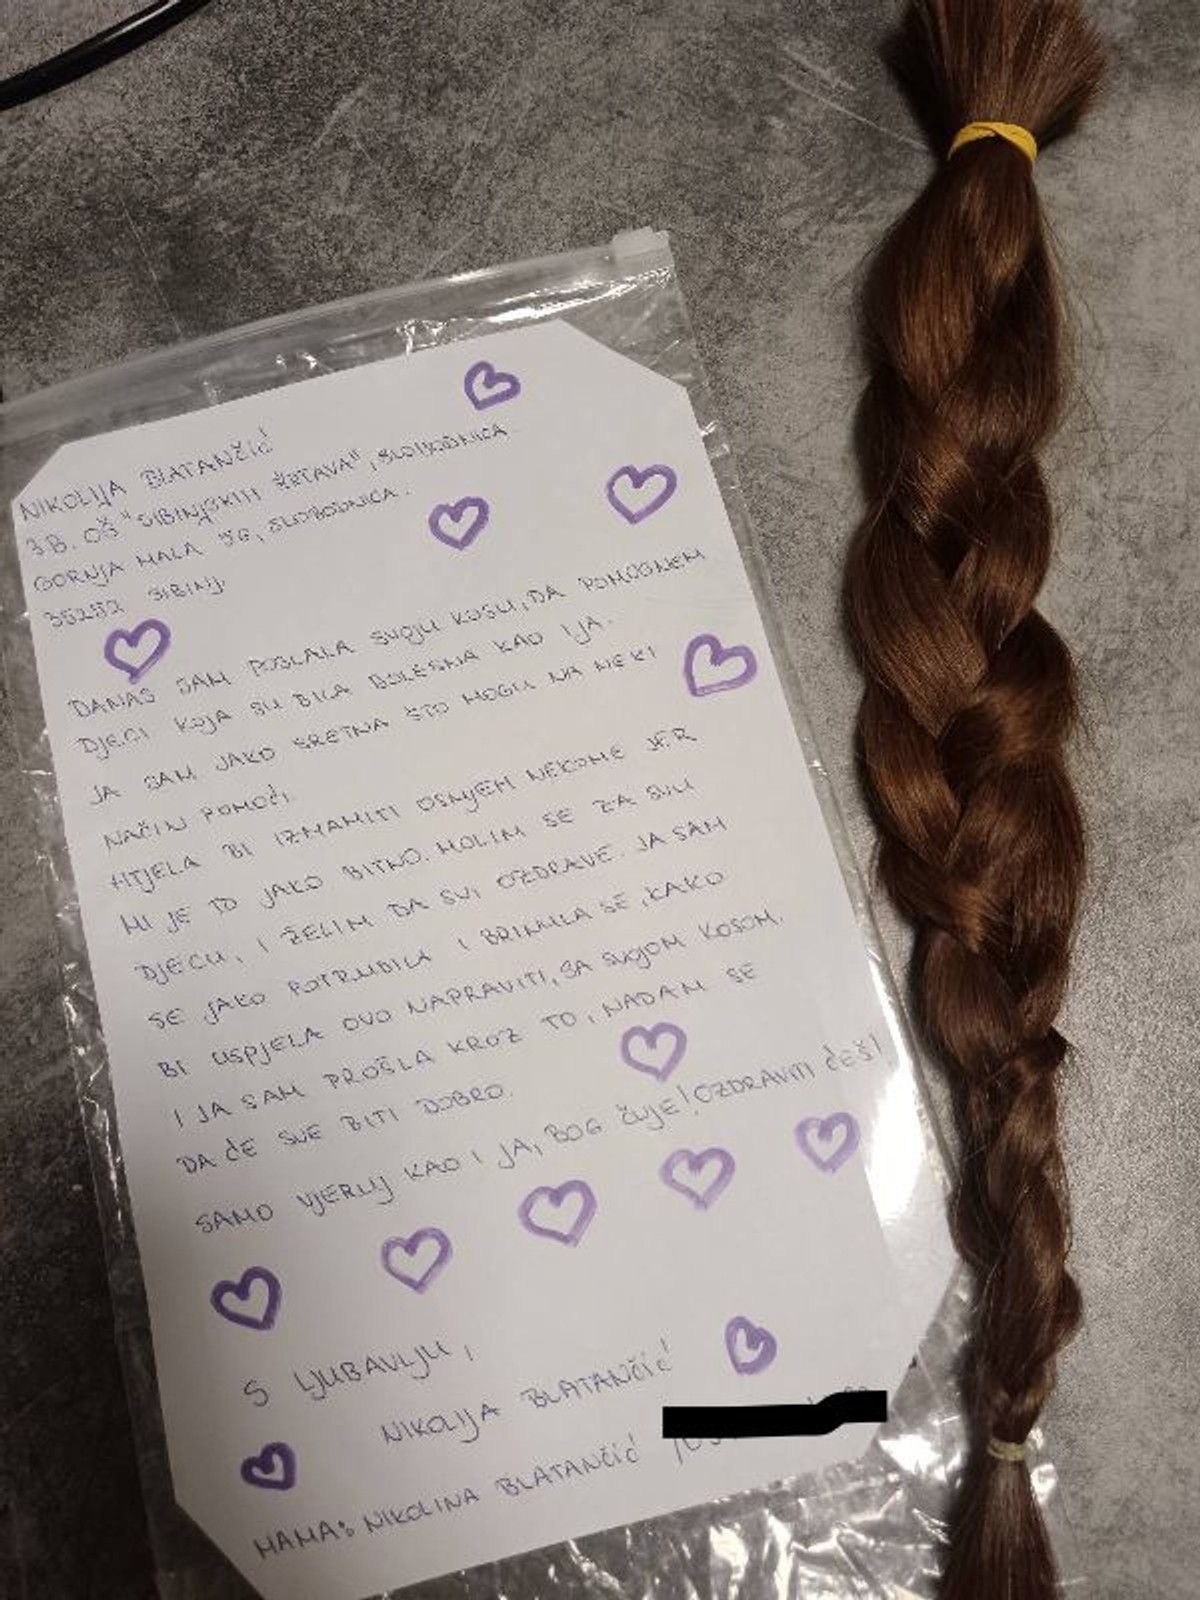 NIKOLIJA BLATANČIĆ
3B. OŠ "SIBINJSKIH ŽRTAVA", SLOBODNICA
GORNJA MALA, SLOBODNICA.
35252 SIBINJ.
DANAS SAM POSLALA SVOJU KOSU, DA POMOGNEM
DJECI KOJA SU BILA BOLESNA KAO I JA.
JA SAM JAKO SRETNA ŠTO MOGU NA NEKI
NAČIN POMOĆI.
HTJELA BI IZMAMITI OSMJEH NEKOME JER
MI JE TO JAKO BITNO. MOLIM SE ZA SVU
DJECU, I ŽELIM DA SVI OZDRAVE. JA SAM
SE JAKO POTRUDILA I BRINULA SE, KAKO
BI USPJELA OVO NAPRAVITI, SA SVOJOM KOSOM.
I JA SAM PROŠLA KROZ TO, NADAM SE
DA ĆE SVE BITI DOBRO.
SAMO VJERUJ KAO I JA, BOG ČUJE! OZDRAVITI ĆEŠ!
S LJUBAVLJU,
NIKOLIJA BLATANČIĆ
MAMA: NIKOLINA BLATANČIĆ